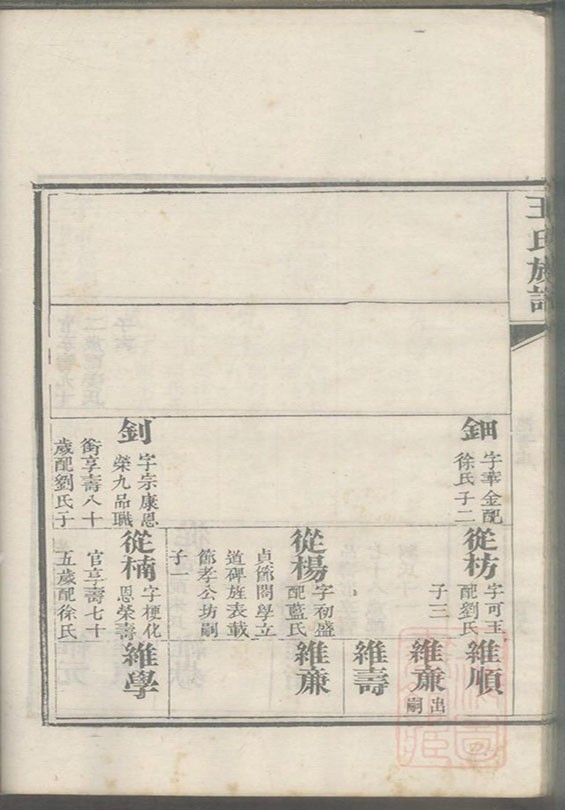 王氏族譜
鈿
字華金配
徐氏子二
釗
字宗康恩
榮九品職
銜享壽八十
歲配劉氏子
從枋
字可玉
配劉氏
子三
從楊
字初盛
配藍氏
貞節闔學立
道碑旌表載
節孝公坊嗣
子一
從楠
字梗化
恩榮壽
官享壽七十
五歲配徐氏
維順
維㢘
出
嗣
維壽
維㢘
維學